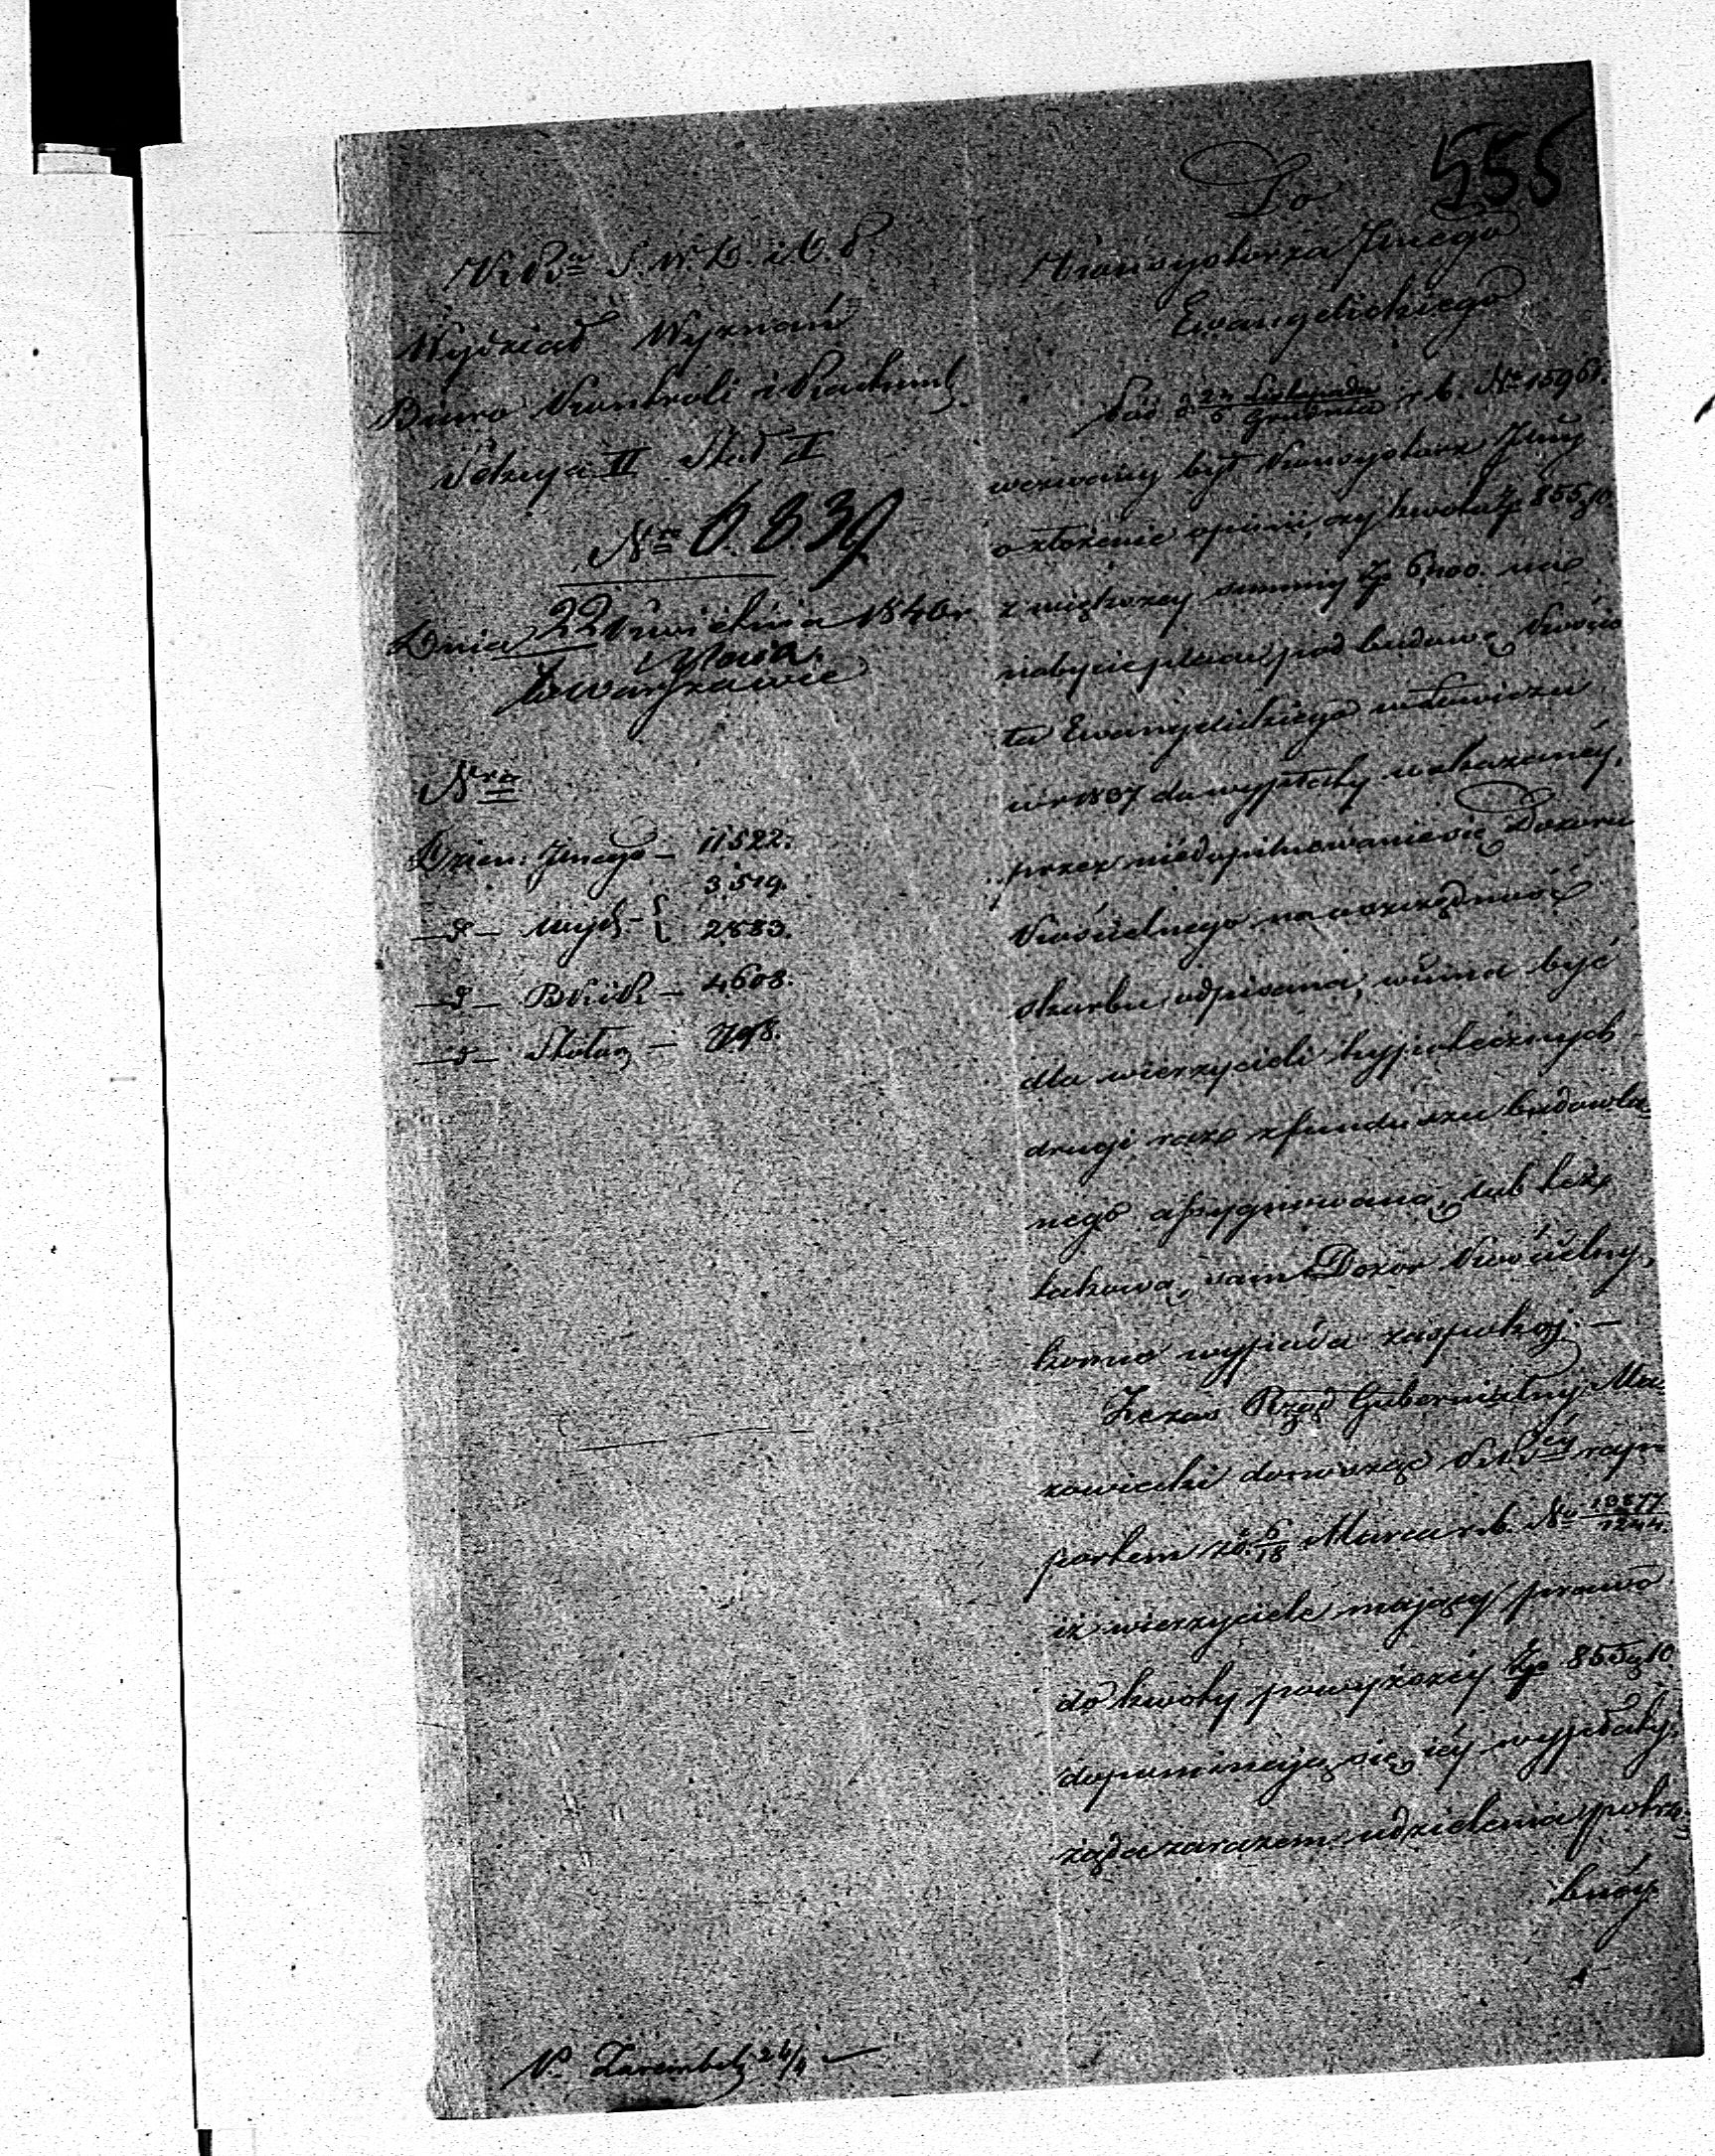 555
K. R. S. W. D. i O. P.
Wydział Wyznań
Biuro Kontroli i Rachunk.
Sekcya II Stół II
Nro 6.839
Dnia 22 Kwietnia 1840 r.
Maja.
w Warszawie
Nra
Dzien: Jnego — 11522.
3519.
—d— Wyd — { 2883.
—d— B K i R — 4608.
—d— — 798.
Do
Konsystorza Jnego
Ewangelickiego
Pod d. 24 Listopada / 6 Grudnia r. b. Nr 15961.
wezwany był Konsystorz Jlny
o złożenie opinii, czy kwota Zp 855 g 10
z większey summy Zp 6,000. na
nabycie placu pod budowę Kościo
ła Ewangelickiego w Łowiczu
w r 1837 do wypłaty wskazaney,
przez niedopilnowanie się Dozoru
Kościelnego na oszczędność
Skarbu odpisana, winna być
dla wierzycieli hypotecznych
drugi raz z funduszu budowla
nego assygnowana, lub też
takową sam Dozor Kościelny,
komu wypada zaspokoj. —
Zczas Rząd Gubernialny Ma
zowiecki donosząc K. R. S. ey rap
portem z d. 6/18 Marca r. b. No 10877/1244.
iż wierzyciele mający prawo
do kwoty powyższey Zp 855 g 10
dopominają się iey wypłaty,
żąda zarazem udzielenia potrze
bney
24/4